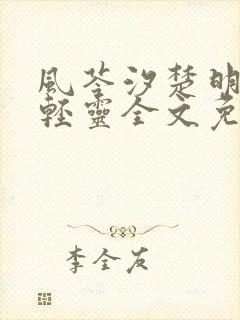 風苓汐楚明
輕靈全文免
李全友